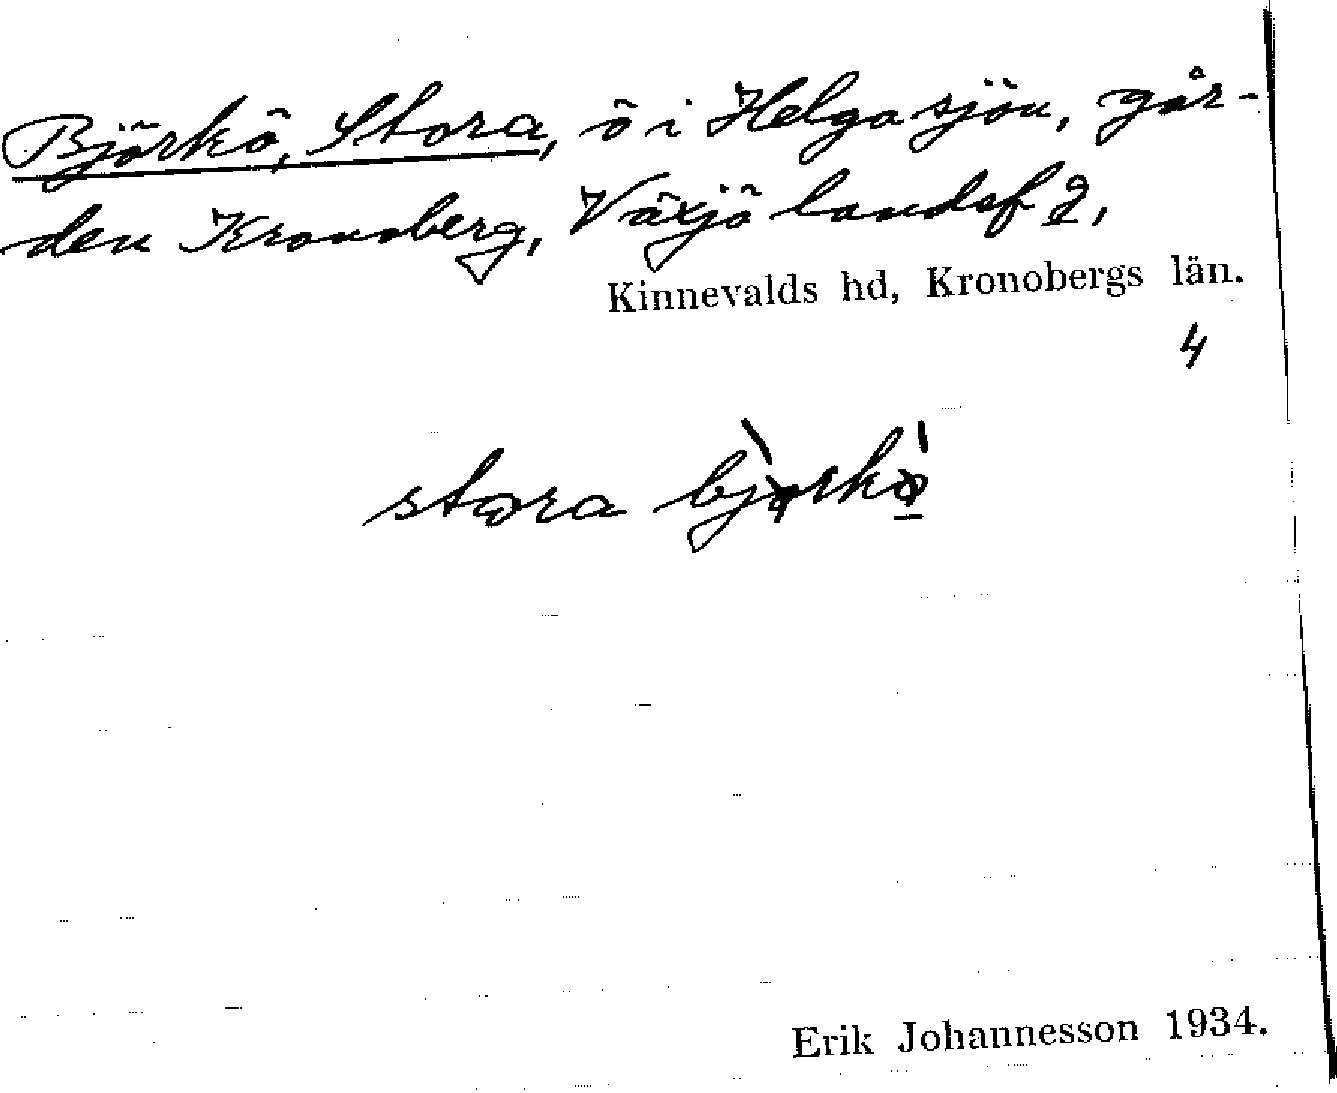 Björkö, Stora, ö i Helgasjön, går-
den Kronoberg, Växjö landsf 2,
Kinnevalds hd, Kronobergs län.
4
stora
Erik Johannesson 1934.